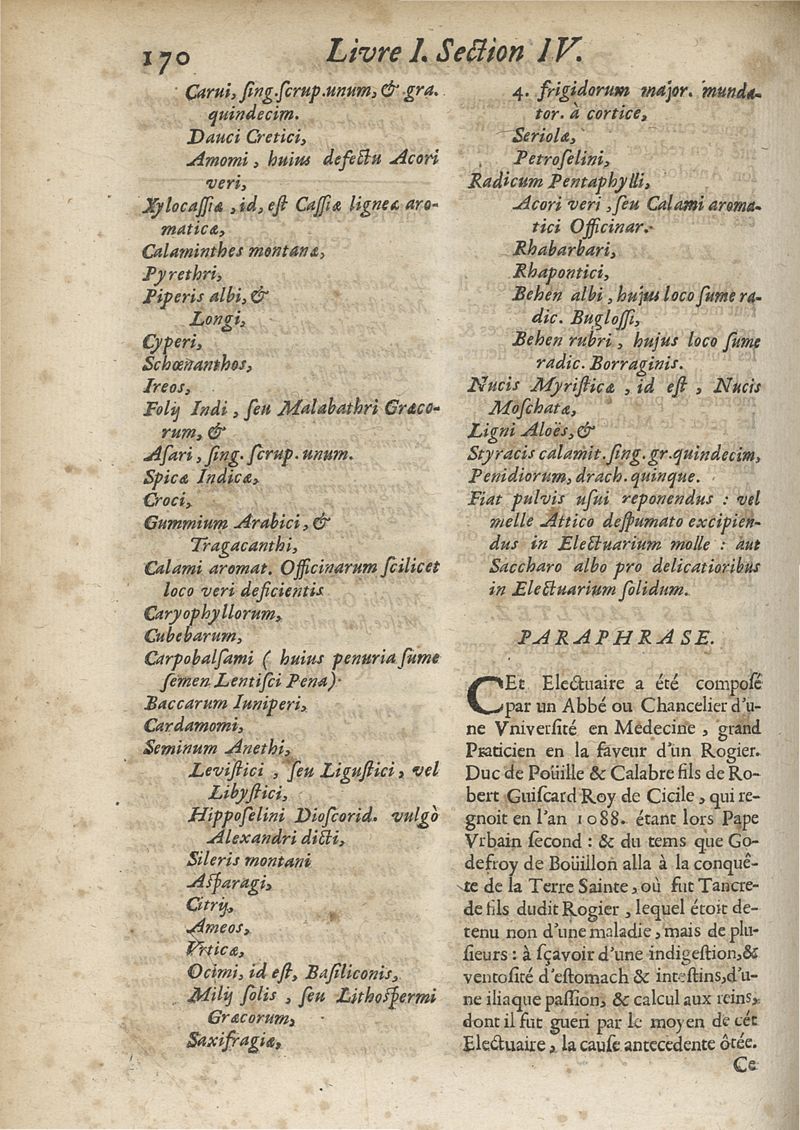 170
Livre I. Section IV.
Carui, ſing.ſcrup.unum, & gra.
quindecim.
Dauci Cretici,
Amomi, huius defectu Acori
veri,
Xylocaſſiæ, id, eſt Caſſiæ ligneæ aro-
maticæ,
Calaminthes montanæ,
Pyrethri,
Piperis albi, &
Longi,
Cyperi,
Schœnanthos,
Ireos,
Folij Indi, ſeu Malabathri Græco-
rum, &
Aſari, ſing. ſcrup. unum.
Spicæ Indicæ,
Croci,
Gummium Arabici, &
Tragacanthi,
Calami aromat. Officinarum ſcilicet
loco veri deficientis
Caryophyllorum,
Cubebarum,
Carpobalſami ( huius penuria ſume
ſemen Lentiſci Pena).
Baccarum Iuniperi,
Cardamomi,
Seminum Anethi,
Leviſtici, ſeu Liguſtici, vel
Libyſtici,
Hippoſelini Dioſcorid. vulgò
Alexandri dicti,
Sileris montani
Aſparagi,
Citrij,
Ameos,
Vrticæ,
Ocimi, id eſt, Baſiliconis,
Milij ſolis, ſeu Lithoſpermi
Græcorum,
Saxifragiæ,
4. frigidorum major. munda-
tor. à cortice,
Seriolæ,
Petroſelini,
Radicum Pentaphylli,
Acori veri, ſeu Calami aroma-
tici Officinar.
Rhabarbari,
Rhapontici,
Behen albi, hujus loco ſume ra-
dic. Bugloſſi,
Behen rubri, hujus loco ſume
radic. Borraginis.
Nucis Myriſticæ, id eſt, Nucis
Moſchatæ,
Ligni Aloës, &
Styracis calamit. ſing. gr. quindecim,
Penidiorum, drach. quinque.
Fiat pulvis uſui reponendus : vel
melle Attico deſpumato excipien-
dus in Electuarium molle : aut
Saccharo albo pro delicatioribus
in Electuarium ſolidum.
PARAPHRASE.
CEt Electuaire a été compoſé
par un Abbé ou Chancelier d'u-
ne Vniverſité en Medecine, grand
Praticien en la faveur d'un Rogier.
Duc de Poüille & Calabre fils de Ro-
bert Guiſcard Roy de Cicile, qui re-
gnoit en l'an 1088. étant lors Pape
Vrbain ſecond : & du tems que Go-
defroy de Boüillon alla à la conquê-
te de la Terre Sainte, où fut Tancre-
de fils dudit Rogier, lequel étoit de-
tenu non d'une maladie, mais de plu-
ſieurs : à ſçavoir d'une indigeſtion, &
ventoſité d'eſtomach & inteſtins, d'u-
ne iliaque paſſion, & calcul aux reins,
dont il fut gueri par le moyen de cét
Electuaire, la cauſe antecedente ôtée.
Ce